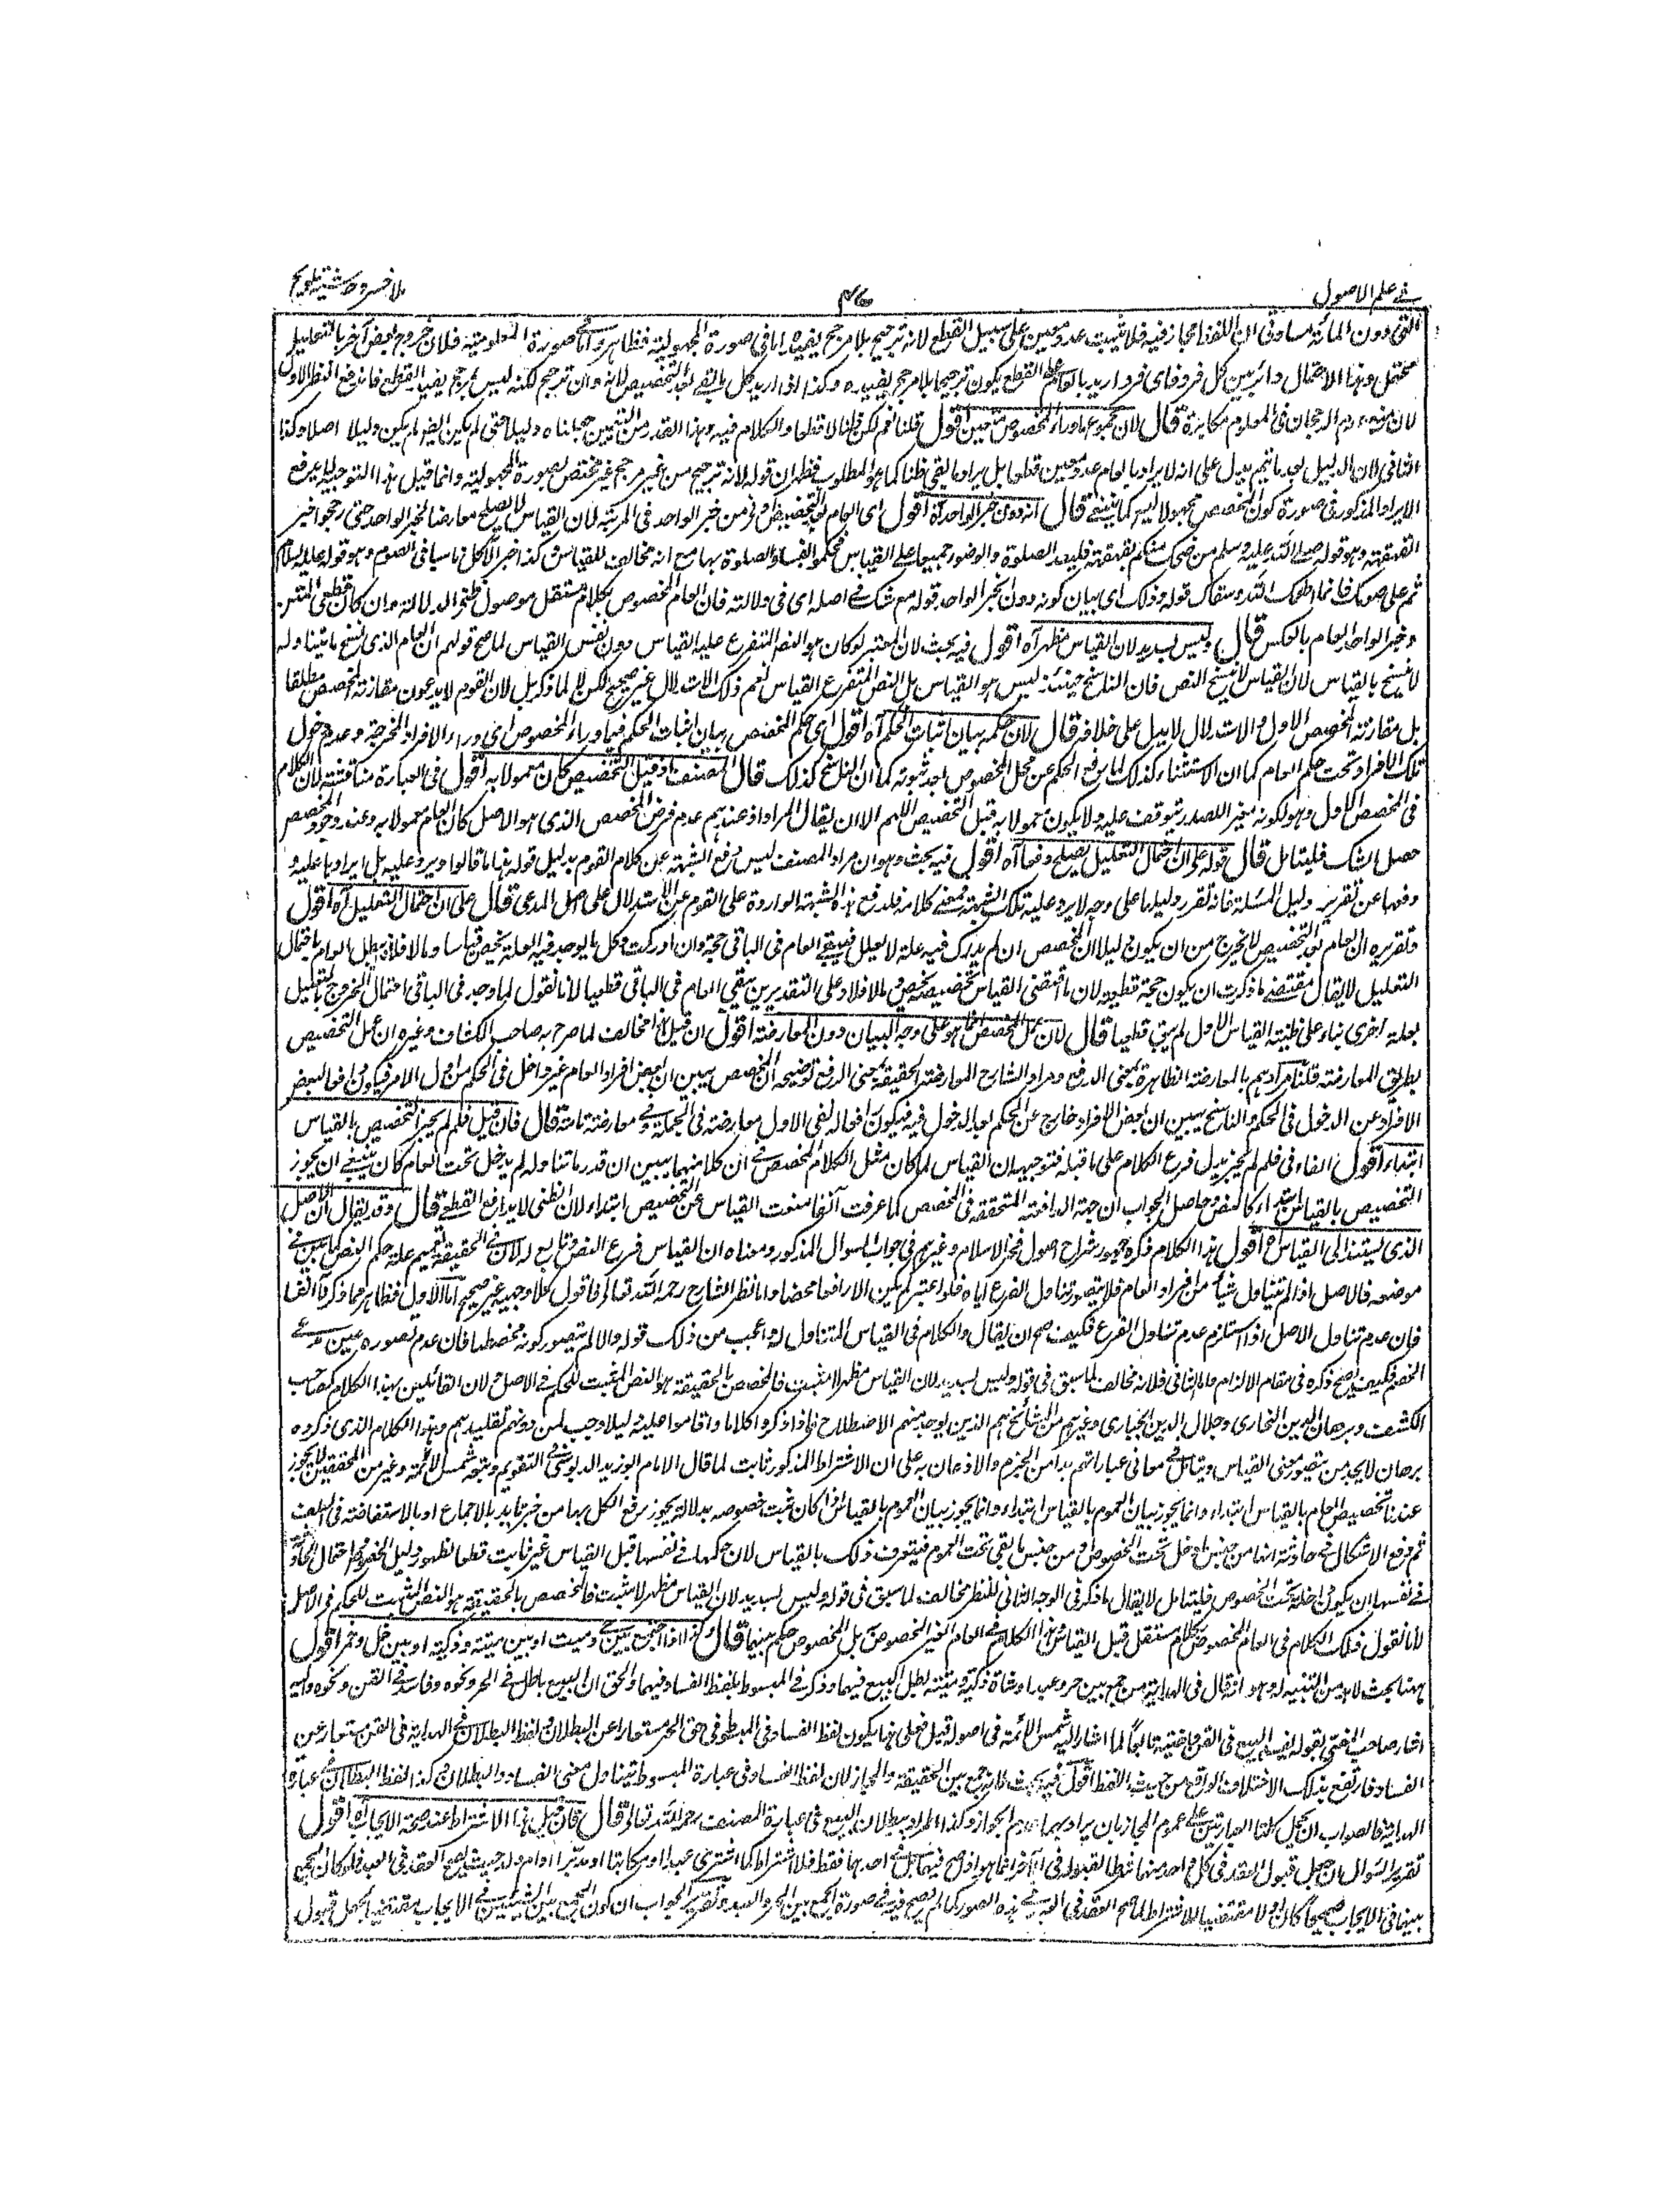 في علم الاصول
ملا خسرو حاشية تلويح
التي دون المائة مساو في ان اللفظ مجاز فيه فلا يثبت عدد معين على سبيل القطع لانه ترجيح بلا مرجح يفيده اما في صورة المجهولية فظاهر واما في صورة المعلومية فلان خروج بعض آخر بالتعليل
محتمل وهذا الاحتمال دائر بين كل فرد فاي فرد اريد بالعام على القطع يكون ترجيحا بلا مرجح يفيده وكذا اذا اريد كل ما بقي بعد التخصيص لانه وان ترجح لكنه ليس بمرجح يفيد القطع فاندفع النظر الاول
لان منع عدم الرجحان في المعلوم مكابرة قال لان مجموع ما وراء المخصوص متعين اقول قلنا نعم لكن ظنا لا قطعا والكلام فيه وهذا القدر من التعيين جعلناه دليلا حتى لو لم يكن لم يكن دليلا اصلا وكذا
الثاني لان الدليل لم يدل على انه لا يراد بالعام عدد معين قطعا بل يراد ما بقي ظنا كما هو المطلوب فظهر ان قوله لانه ترجيح من غير مرجح غير مختص بصورة المجهولية وانما قيل هذا التوجيه ليندفع
الايراد المذكور في صورة كون المخصص مجهولا ليس كما ينبغي قال انه دون خبر الواحد آه اقول اي العام بعد التخصيص ادنى من خبر الواحد في المرتبة لان القياس لا يصلح معارضا لخبر الواحد حتى رجحوا خبر
القهقهة وهو قوله صلى الله عليه وسلم من ضحك منكم بقهقهة فليعد الصلوة والوضوء جميعا على القياس فحكموا بفساد الصلوة بها مع انه مخالف للقياس وكذا خبر الاكل ناسيا في الصوم وهو قوله عليه السلام
تم على صومك فانما اطعمك الله وسقاك قوله وذلك اي بيان كونه دون خبر الواحد قوله مع شك في اصله اي في دلالته فان العام المخصوص بكلام مستقل موصول ظني الدلالة وان كان قطعي المتن
وخبر الواحد العام بالعكس قال وليس بسديد لان القياس مظهر آه اقول فيه بحث لان المعتبر لو كان هو النص المتفرع عليه القياس دون نفس القياس لما صح قولهم ان العام الذي نسخ ما تناوله
لا ينسخ بالقياس لان القياس لا ينسخ النص فان الناسخ حينئذ ليس هو القياس بل النص المتفرع القياس نعم ذلك الاستدلال غير صحيح لكن لا لما ذكر بل لان القوم لا يدعون مقارنة المخصص مطلقا
بل مقارنة المخصص الاول والاستدلال لا يدل على خلافه قال لان حكمه بيان اثبات الحكم آه اقول اي حكم المخصص بيان اثبات الحكم فيما وراء المخصوص اي وراء الافراد المخرجة وعدم دخول
تلك الافراد تحت حكم العام كما ان الاستثناء كذلك لا رفع الحكم عن محل المخصوص بعد ثبوته كما ان الناسخ كذلك قال المصنف اذ قبل التخصيص كان معمولا به اقول في العبارة مناقشة لان الكلام
في المخصص الاول وهو لكونه مغير الصدر يتوقف عليه ولا يكون معمولا به قبل التخصيص اللهم الا ان يقال المراد اذ عندهم عدم فرض المخصص الذي هو الاصل كان العام معمولا به وعند وجود المخصص
حصل الشك فليتامل قال قوله على ان احتمال التعليل يصلح دفعا آه اقول فيه بحث وهو ان مراد المصنف ليس دفع الشبهة عن كلام القوم بدليل قوله هذا ما قالوا ويرد عليه بل ايرادها عليه و
دفعها عن تقرير دليل المسئلة فانه تقرر دليلها على وجه لا يرد عليه تلك الشبهة فمعنى كلامه فلدفع هذه الشبهة الواردة على القوم عن الاستدلال على اصل المدعى قال على ان احتمال التعليل آه اقول
وتقريره ان العام بعد التخصيص لا يخرج من ان يكون دليلا لان المخصص ان لم يدرك فيه علة لا يعلل فيبقى العام في الباقي حجة وان ادركت فكل ما يوجد فيه العلة يخص قياسا وما لا فلا فلا يبطل العام باحتمال
التعليل لا يقال مقتضى ما ذكرت ان يكون حجة قطعية لان ما اقتضى القياس تخصيصه يخص وما لا فلا وعلى التقديرين يبقى العام في الباقي قطعيا لانا نقول لما وجد في الباقي احتمال الخروج بالتعليل
بعلة اخرى بناء على ظنية القياس الاول لم يبق قطعيا قال لان عمل المخصص انما هو على وجه البيان دون المعارضة اقول ان قيل هذا مخالف لما صرح به صاحب الكشاف وغيره ان عمل التخصيص
بطريق المعارضة قلنا مرادهم بالمعارضة الظاهرة بمعنى الدفع ومراد الشارح المعارضة الحقيقية بمعنى الرفع توضيحه ان المخصص يبين ان بعض افراد العام غير داخل في الحكم من اول الامر فيكون دفعا لبعض
الافراد عن الدخول في الحكم والناسخ يبين ان بعض الافراد خارج عن الحكم بعد الدخول فيه فيكون رفعا له ففي الاول معارضة في الجملة وفي معارضة تامة قال فان قيل فلم لم يجز التخصيص بالقياس
ابتداء اقول الفاء في فلم لم يجز يدل فرع الكلام على ما قبله فتوجيهه ان القياس لما كان مثل الكلام المخصص في ان كلا منهما يبين ان قدر ما تناوله لم يدخل تحت العام كان ينبغي ان يجوز
التخصيص بالقياس ابتداء كالنص وحاصل الجواب ان جهة الدافعة المتحققة في المخصص لما عرفت آنفا منعت القياس عن التخصيص ابتداء لان الظني لا يدافع القطعي قال وقد يقال ان الاصل
الذي يستند الى القياس آه اقول هذا الكلام ذكره جمهور شراح اصول فخر الاسلام وغيرهم في جواب السوال المذكور ومعناه ان القياس فرع النص وتابع له لانه في الحقيقة تعميم علة حكم النص كما بين في
موضعه فالاصل اذا لم يتناول شيئا من افراد العام فلا يتصور تناول الفرع اياه فلو اعتبر لم يكن الا رافعا محضا واما نظر الشارح رحمه الله تعالى فاقول كلا وجهيه غير صحيح اما الاول فظاهر مما ذكرنا آنفا
فان عدم تناول الاصل اذا استلزم عدم تناول الفرع فكيف صح ان يقال والكلام في القياس المتناول له واعجب من ذلك قوله والا لم يتصور كونه مخصصا فان عدم تصوره عين مدعى
الخصم فكيف يصح ذكره في مقام الالزام واما الثاني فلانه مخالف لما سبق في قوله وليس بسديد لان القياس مظهر لا مثبت فالمخصص بالحقيقة هو النص المثبت للحكم في الاصل لان القائلين بهذا الكلام كصاحب
الكشف وبرهان الدين البخاري وجلال الدين الخبازي وغيرهم من المشائخ هم الذين يوجد منهم الاصطلاح فاذا ذكروا كلاما واقاموا عليه دليلا وجب لمن دونهم تقليدهم وهذا الكلام الذي ذكروه
برهان لا يجد من يتصور معنى القياس ويتامل في معاني عباراتهم بدا من الجزم والاذعان به على ان الاشتراط المذكور ثابت لما قال الامام ابو زيد الدبوسي في التقويم وتبعه شمس الائمة وغيره من المحققين لا يجوز
عندنا تخصيص العام بالقياس ابتداء وانما يجوز بيان العموم بالقياس ابتداء وانما يجوز بيان العموم بالقياس اذا كان ثبت خصوصه بدلالة يجوز رفع الكل بها من خبر تايد بالاجماع او بالاستفاضة في السلف
ثم وقع الاشكال في حادثة انها من جنس ما دخل تحت الخصوص او من جنس ما بقي تحت العموم فيتعرف ذلك بالقياس لان حكمها في نفسها قبل القياس غير ثابت قطعا لظهور دليل الخصوص واحتمال الحادثة
في نفسها ان يكون داخلة تحت الخصوص فليتامل لا يقال ما ذكر في الوجه الثاني للنظر مخالف لما سبق في قوله وليس بسديد لان القياس مظهر لا مثبت فالمخصص بالحقيقة هو النص المثبت للحكم في الاصل
لانا نقول ذلك الكلام في العام المخصوص بكلام مستقل قبل القياس وهذا الكلام في العام الغير المخصوص بل المخصوص حكم بينهما قال وكذا اذا جمع بين حي وميت او بين ميتة وذكية او بين خل وخمر اقول
ههنا بحث لا بد من التنبيه له وهو انه قال في الهداية من جمع بين حر وعبد او شاة ذكية وميتة بطل البيع فيهما وذكر في المبسوط بلفظ الفساد فيهما والحق ان البيع باطل في الحر ونحوه وفاسد في القن ونحوه واليه
اشار صاحب المغني بقوله يفسد البيع في القن واختيه تابعا لما اشار اليه شمس الائمة في اصوله قيل فعلى هذا يكون لفظ الفساد في المبسوط في حق الحر مستعارا عن البطلان ولفظ البطلان في الهداية في القن مستعار عن
الفساد فارتفع بذلك الاختلاف الواقع من حيث اللفظ اقول فيه بحث لانه جمع بين الحقيقة والمجاز لان لفظ الفساد في عبارة المبسوط يتناول معنى الفساد والبطلان وكذا لفظ البطلان في عبارة
الهداية فالصواب ان يحمل كلتا العبارتين على عموم المجاز بان يراد بهما عدم الجواز وكذا المراد ببطلان البيع في عبارة المصنف رحمه الله تعالى قال فان قيل هذا الاشتراط عند صحة الايجاب آه اقول
تقرير السوال ان جعل قبول العقد في كل واحد منهما شرطا لقبوله في الآخر انما هو اذا صح فيهما لا في احدهما فقط فلا اشتراط كما اشترى عبدا او مكاتبا او مدبرا او ام ولد حيث يصح العقد في العبد فلو كان الجمع
بينهما في الايجاب صحيحا كان او لا مقتضيا للاشتراط لما صح العقد في العبد في هذه الصور كما لم يصح فيه في صورة الجمع بين الحر والعبد وتقرير الجواب ان كون الجمع بين الشيئين في الايجاب مقتضيا لجعل قبول